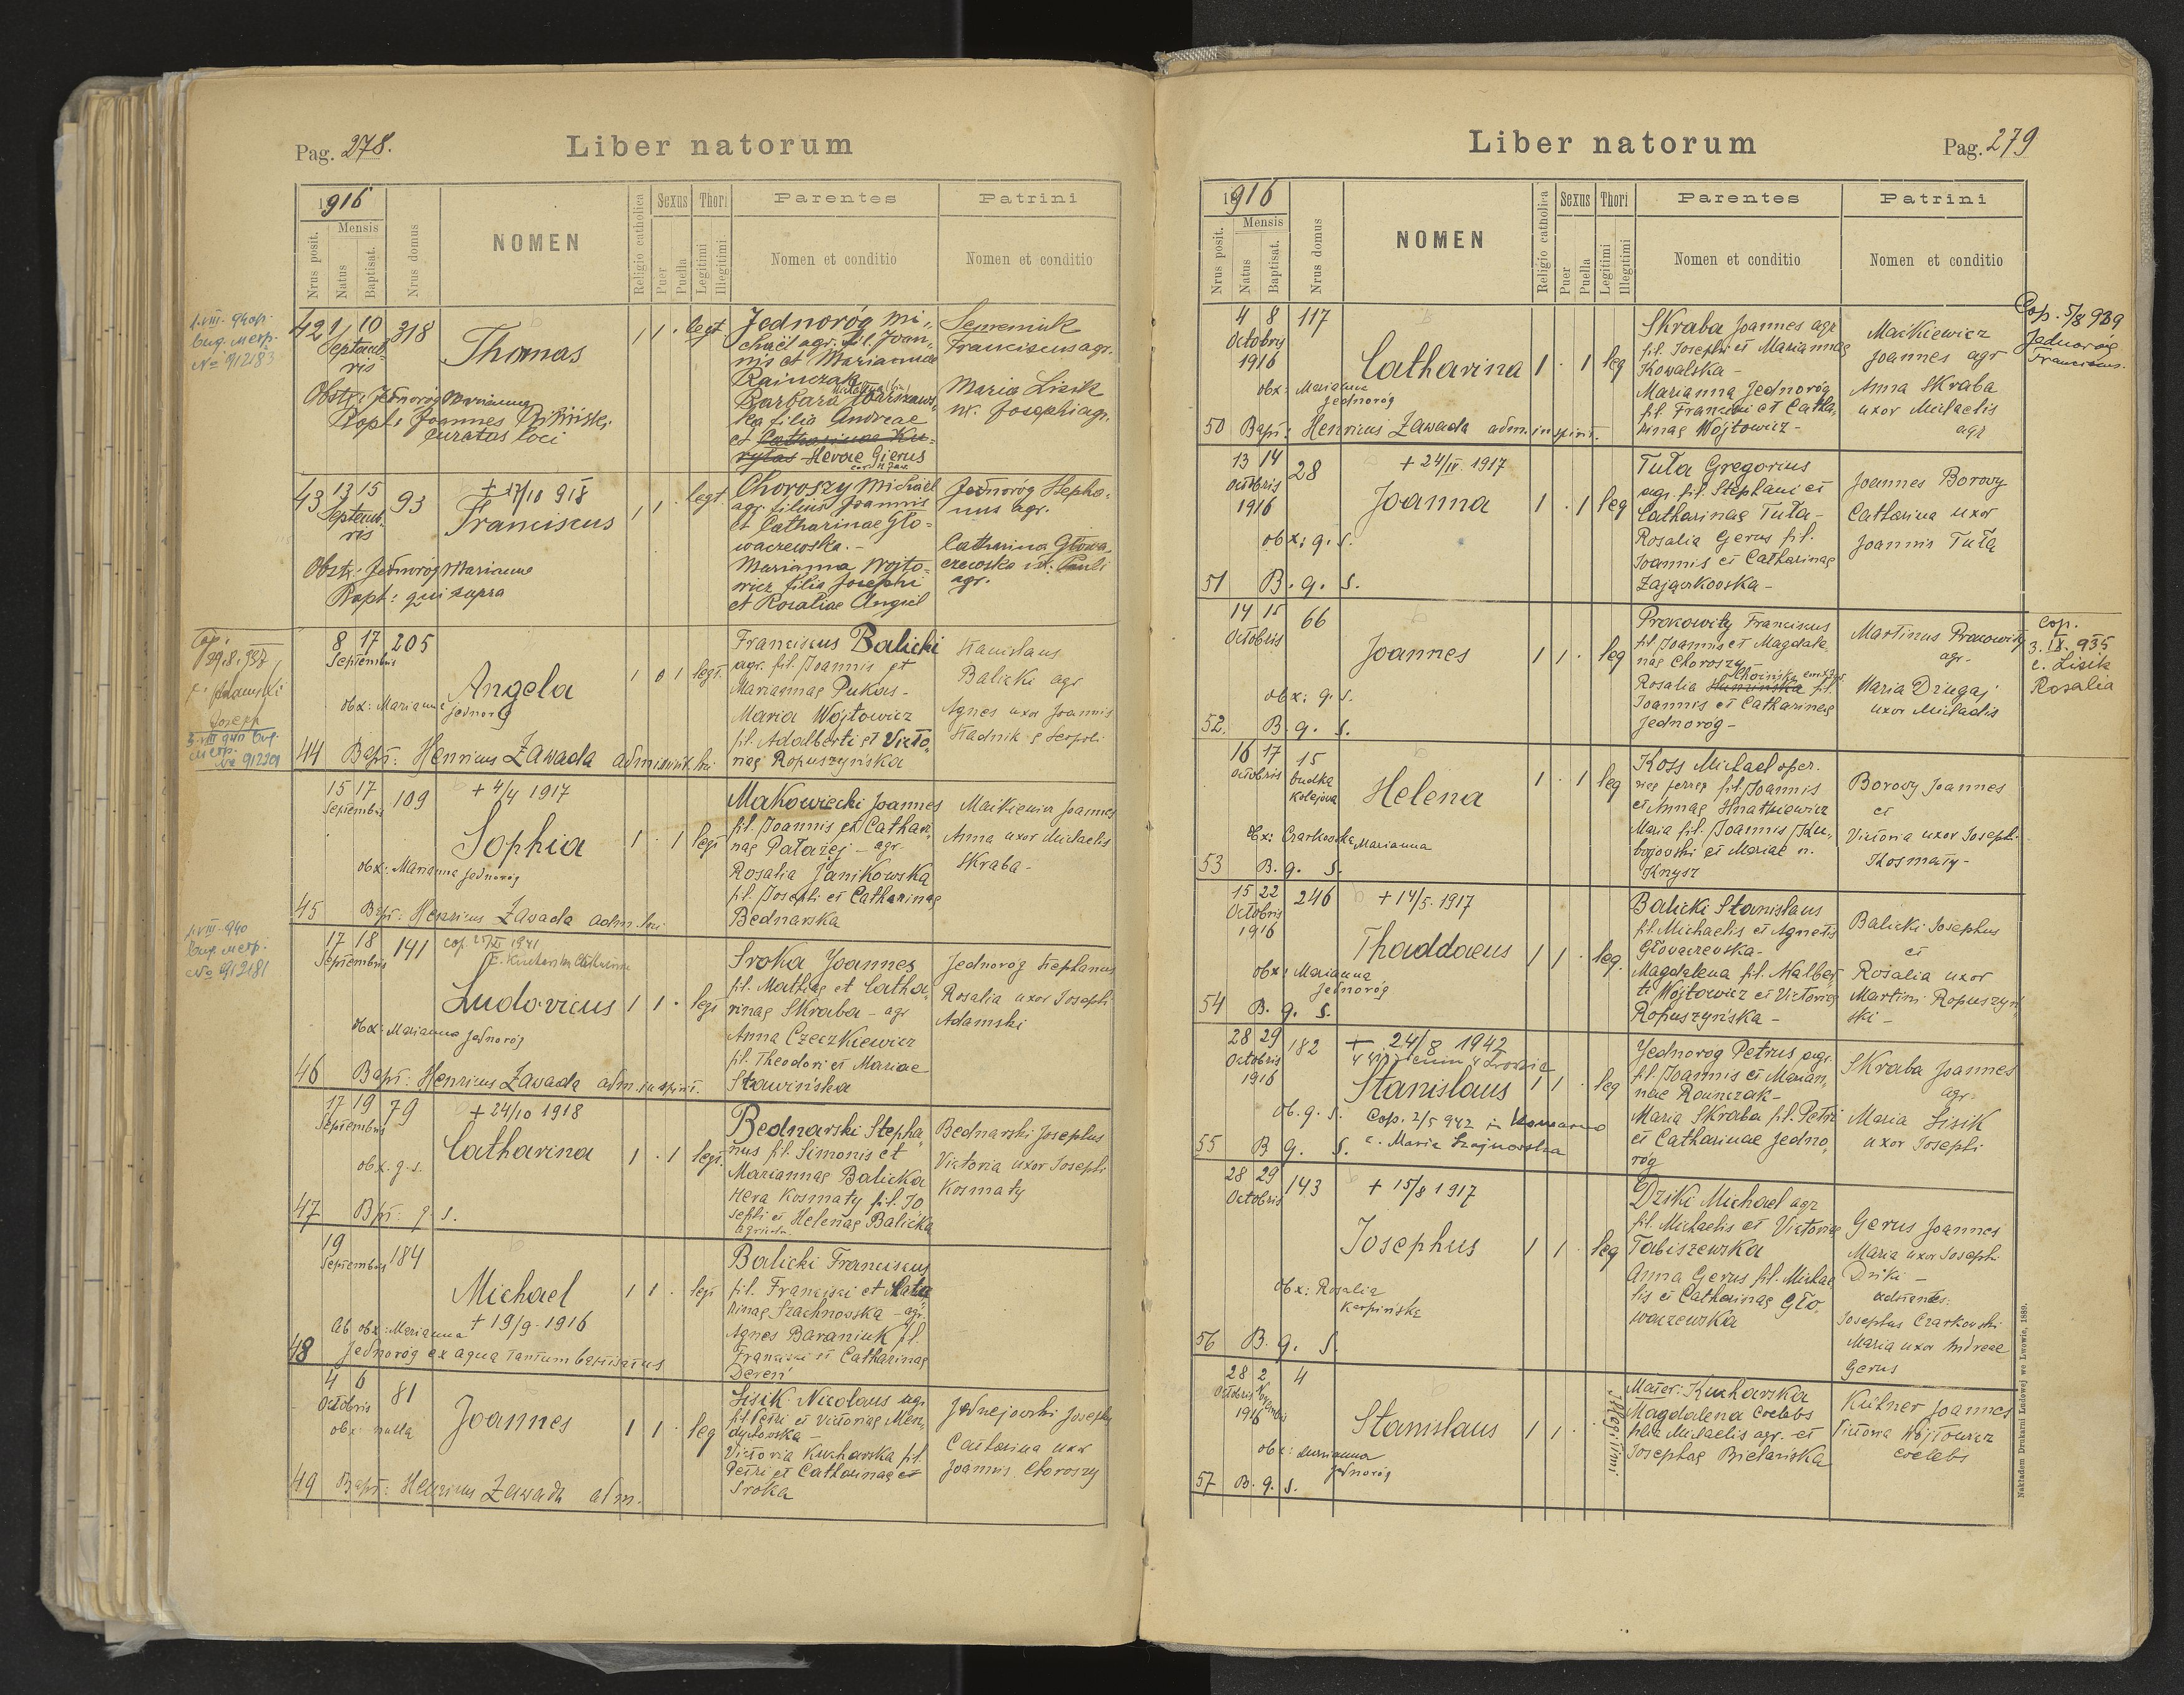 Pag. 278.
Liber natorum
1916
Nrus posit.
Mensis
Natus
Baptisat.
Nrus domus
NOMEN
Religio catholica
Sexus
Puer
Puella
Thori
Legitimi
Illegitimi
Parentes
Nomen et conditio
Patrini
Nomen et conditio
1.VIII. 940 p.
№ 912183
42 1/ 10 318
Septemb-
ris
Thomas
1 1 · legt
Obstr: Jednoróg Marianna
Bapt: Joannes
curatus loci
Jednoróg Mi-
chael agr. fil. Joan-
nis et Mariannae
Rainczak
Barbara
ka filia Andreae
et Catharinae Ku-
rytas Hevae Gierus
Franciscus agr.
Maria Lisik
ux. Josephi agr.
43 13 15 93
Septemb-
ris
+ 17/10 918
Franciscus
1 1 · legt
Obstr: Jednoróg Marianna
Bapt: qui supra
Choroszy Michael
agr. filius Joannis
et Catharinae Gło-
waczewska. -
Marianna Wojto-
wicz filia Josephi
et Rosaliae Angiel
Jednoróg Stepha-
nus agr.
Catharina Głowa-
czewska Pauli
agr.
Cop.
29.8.937
Adamski
Joseph
3.VIII 940
№ 912201
8 17 205
Septembris
Angela
1 0 1 legt.
obx: Marianna
Jednoróg
44 Bapt: Henricus Zawada
Franciscus Balicki
agr. fil. Joannis et
Mariannae Pukas -
Maria Wójtowicz
fil. Adalberti et Victo-
riae Ropuszyńska
Stanislaus
Balicki agr
Agnes uxor Joannis
Stadnik e Leopoli
15 17 109
Septembris
+ 4/4 1917
Sophia
1 · 1 legt
obx: Marianna Jednoróg
45 Bapt: Henricus Zawada adm.
Makowiecki Joannes
fil. Joannis et Cathari-
nae Patazej - agr.
Rosalia Janikowska
fil. Josephi et Catharinae
Bednarska
Mackiewicz Joannes
Anna uxor Michaelis
Skraba -
1.VIII. 940
№ 912181
17 18 141
Septembris
cop. 1941
Ludovicus
1 1 · legt
obx: Marianna Jednoróg
46 Bapt: Henricus Zawada adm. in spirit.
Sroka Joannes
fil. Mathiae et Catha-
rinae Skraba - agr
Anna Czeczkiewicz
fil. Theodori et Mariae
Stawińska
Jednoróg Stephanus
Rosalia uxor Josephi
Adamski
17 19 79
Septembris
+ 24/10 1918
Catharina
1 · 1 legt.
obx: q. s.
47 Bpt: q. s.
Bednarski Stepha-
nus fil. Simonis et
Mariannae Balicka
Heva Kosmaty fil. Jo-
sephi et Helenae Balicka
agricola
Bednarski Josephus
Victoria uxor Josephi
Kosmaty
19
Septembris 184
Michael
+ 19/9 · 1916
1 1 · legt
Ab obx: Marianna
48 Jednoróg ex aqua tantum baptisatus
Balicki Franciscus
fil. Francisci et Catha-
rinae Szachnowska - agr.
Agnes Baraniuk fil.
Francisci et Catharinae
Dereń
4 6 81
Octobris
obx: nulla
Joannes
1 1 · leg
49 Bapt: Henricus Zawada adm.
Lisik Nicolaus agr.
fil. Petri et Victoriae Men-
dychowska -
Victoria Kucharska fil.
Petri et Catharinae
Sroka
Catharina uxor
Joannis Choroszy
Liber natorum
Pag. 279
1916
Nrus posit.
Mensis
Natus
Baptisat.
Nrus domus
NOMEN
Religio catholica
Sexus
Puer
Puella
Thori
Legitimi
Illegitimi
Parentes
Nomen et conditio
Patrini
Nomen et conditio
4 8 117
Octobris
1916
Catharina
1 · 1 leg
obx: Marianna
Jednoróg
50 Bapt: Henricus Zawada adm. in spirit.
Skraba Joannes agr
fil. Josephi et Mariannae
Kowalska -
Marianna Jednoróg
fil. Francisci et Catha-
rinae Wójtowicz -
Mackiewicz
Joannes agr
Anna Skraba
uxor Michaelis
agr
Cop. 5/8 939
Jednoróg
Franciscus.
13 14 28
Octobris
1916
+ 24/IV. 1917
Joanna
1 · 1 leg
obx: q. s.
51 B. q. s.
Tuła Gregorius
agr. fil. Stephani et
Catharinae Tuła -
Rosalia Gerus fil.
Joannis et Catharinae
Zajączkowska -
Joannes Borowy
Catharina uxor
Joannis Tuła
14 15 66
Octobris
Joannes
1 1 · leg
obx: q. s.
52. B. q. s.
Prokowity Franciscus
fil. Joannis et Magdale-
nae Choroszy -
Rosalia fil.
Joannis et Catharinae
Jednoróg -
Martinus Prokowity
agr.
Maria Dziugaj
uxor Michaelis
cop.
3. IX. 935
c. Lisik
Rosalia
16 17 15
Octobris budka
kolejowa
Helena
1 · 1 leg
obx: Czarkowska Marianna
53 B. q. s.
Koss Michael oper.
viae ferreae fil. Joannis
et Annae Hnatkiewicz
Maria fil. Joannis Ku-
bojowski et Mariae n.
Knysz
Borowy Joannes
et
Victoria uxor Josephi
Kosmaty -
15 22 246
Octobris
1916
+ 14/5. 1917
Thaddaeus
1 1 · leg.
obx: Marianna
Jednoróg
54 B. q. s.
Balicki Stanislaus
fil. Michaelis et Agnetis
Głowaczewska -
Magdalena fil. Walber-
ti Wójtowicz et Victoriae
Ropuszyńska -
Balicki Josephus
et
Rosalia uxor
Martini Ropuszyń-
ski -
28 29 182
Octobris
1916
+ 24/8 1942
Stanislaus
1 1 · leg
ob. q. s.
Cop. 2/5 942 in Komarno
c. Maria
55 B. q. s.
Jednoróg Petrus agr.
fil. Joannis et Marian-
nae Rainczak -
Maria Skraba fil. Petri
et Catharinae Jedno-
róg
Skraba Joannes
agr.
Maria Lisik
uxor Josephi
28 29 143
Octobris
+ 15/8 1917
Josephus
1 1 · leg
obx: Rosalia
Karpińska
56 B. q. s.
Dziki Michael agr
fil. Michaelis et Victoriae
Tabiszewska
Anna Gerus fil. Michae-
lis et Catharinae Gło-
waczewska
Gerus Joannes
Maria uxor Josephi
Dziki -
adstantes:
Josephus Czarkowski
Maria uxor Andreae
Gerus
28 2 4
Octobris Novembris
1916
Stanislaus
1 1 ·
Illegitimi
obx: Marianna
Jednoróg
57 B. q. s.
Mater: Kucharska
Magdalena coelebs
filia Michaelis agr. et
Josephae Bielańska
Kutner Joannes
Victoria Wójtowicz
coelebs
Nakładem Drukarni Ludowej we Lwowie, 1889.